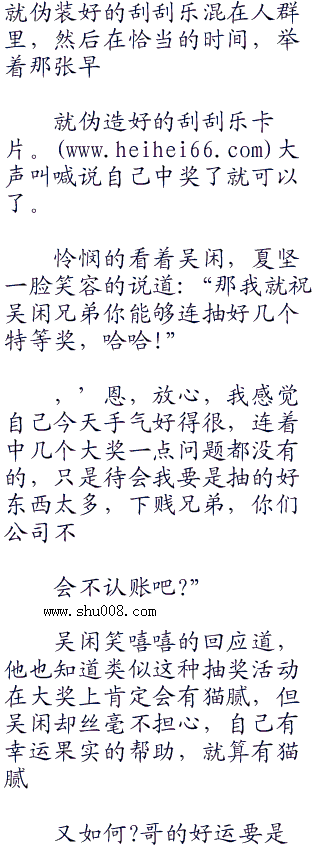 就伪装好的刮刮乐混在人群
里，然后在恰当的时间，举
着那张早
就伪造好的刮刮乐卡
片。(www.heihei66.com)大
声叫喊说自己中奖了就可以
了。
怜悯的看着吴闲，夏坚
一脸笑容的说道：“那我就祝
吴闲兄弟你能够连抽好几个
特等奖，哈哈!”
，’恩，放心，我感觉
自己今天手气好得很，连着
中几个大奖一点问题都没有
的，只是待会我要是抽的好
东西太多，下贱兄弟，你们
公司不
会不认账吧?”
www.shu008.com
吴闲笑嘻嘻的回应道，
他也知道类似这种抽奖活动
在大奖上肯定会有猫腻，但
吴闲却丝毫不担心，自己有
幸运果实的帮助，就算有猫
腻
又如何?哥的好运要是